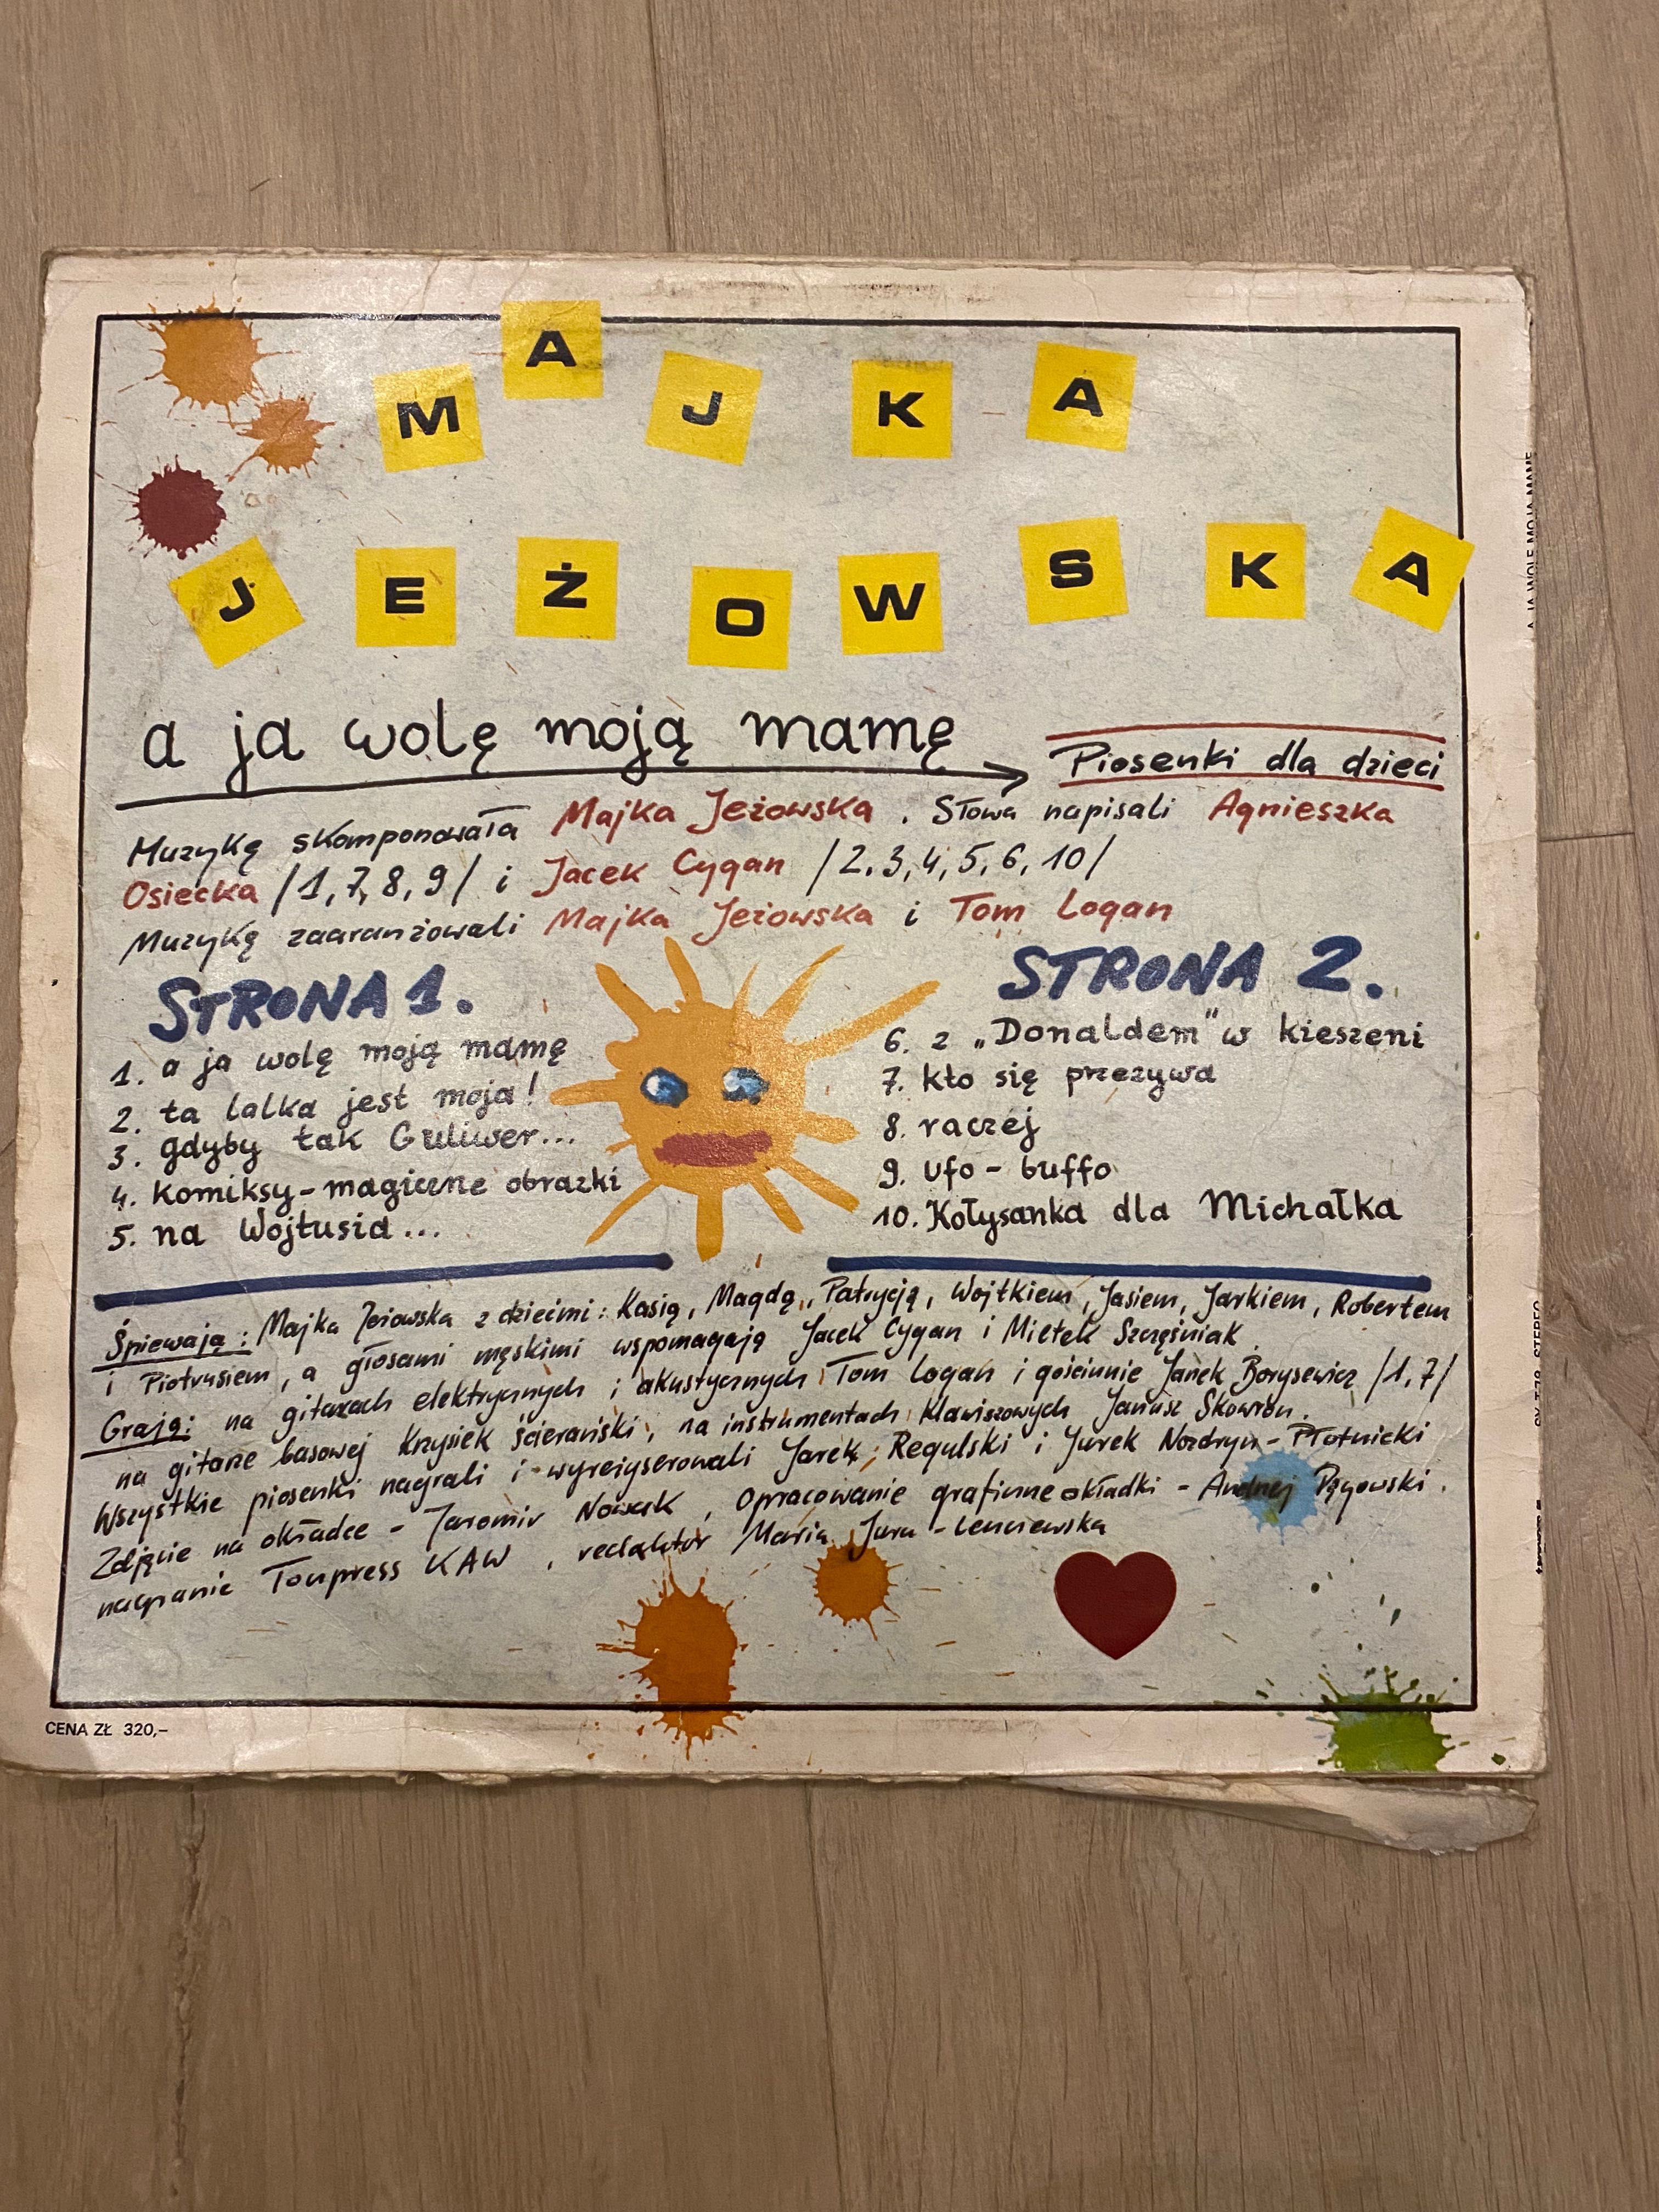 MAJKA
JEŻOWSKA
a ja wolę moją mamę
Piosenki dla dzieci
Muzykę skomponowała Majka Jeżowska. Słowa napisali Agnieszka
Osiecka /1,7,8,9/ i Jacek Cygan /2,3,4,5,6,10/
Muzykę zaaranżowali Majka Jeżowska i Tom Logan
STRONA 1.
1. a ja wolę moją mamę
2. ta lalka jest moja!
3. gdyby tak Guliwer...
4. komiksy-magiczne obrazki
5. na Wojtusia...
STRONA 2.
6. z „Donaldem" w kieszeni
7. kto się przezywa
8. raczej
9. ufo-buffo
10. Kołysanka dla Michałka
Śpiewają: Majka Jeżowska z dziećmi: Kasią, Magdą, Patrycją, Wojtkiem, Jasiem, Jarkiem, Robertem
i Piotrusiem, a głosami męskimi wspomagają Jacek Cygan i Mietek Szcześniak.
Grają: na gitarach elektrycznych i akustycznych Tom Logan i gościnnie Janek Borysewicz /1,7/
na gitarze basowej Krzysiek Ścierański, na instrumentach klawiszowych Janusz Skowron.
Wszystkie piosenki nagrali i wyreżyserowali Jarek Regulski i Jurek Nozdryn-Płotnicki
Zdjęcie na okładce - Jaromir Nowak, Opracowanie graficzne okładki - Andrzej Pągowski.
nagranie Tonpress KAW, redaktor Maria Jura-
CENA ZŁ 320,–
A JA WOLĘ MOJĄ MAMĘ
STEREO